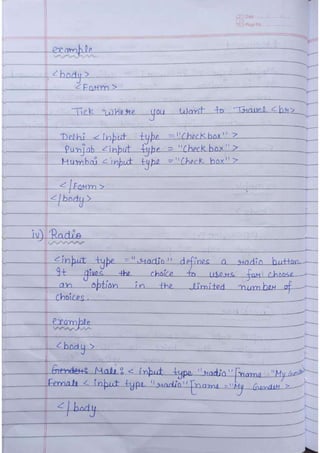 example
<body>
<Form>
Tick where you want to Travel <br>
Delhi <input type ="Check box">
Punjab <input type = "Check box">
Mumbai <input type ="Check box">
</Form>
</body>
iv) Radio
<input type ="radio" defines a radio button.
It gives the choice to users for choose
an option in the limited number of
choices.
example
<body>
Male : < input type "radio" [name ="My Gender
Female < input type "radio" [name ="My Gender >
</body